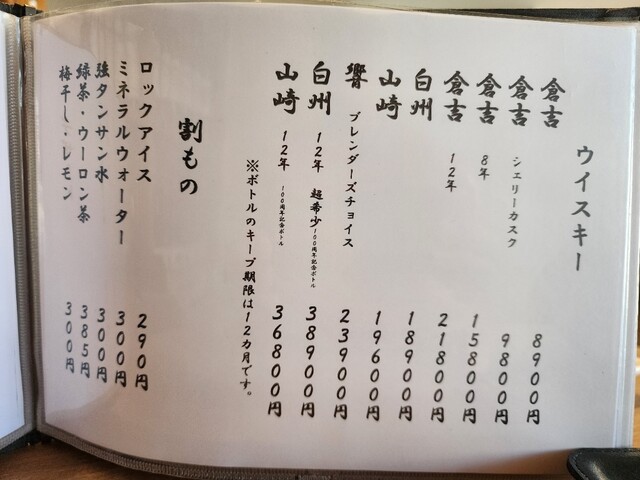 ウイスキー
倉吉 8900円
倉吉 シェリーカスク 9800円
倉吉 8年 15800円
倉吉 12年 21800円
白州 18900円
山崎 19600円
響 ブレンダーズチョイス 23900円
白州 12年 超希少 100周年記念ボトル 38900円
山崎 12年 100周年記念ボトル 36800円
※ボトルのキープ期限は12カ月です。
割もの
ロックアイス 290円
ミネラルウォーター 300円
強タンサン水 300円
緑茶・ウーロン茶 385円
梅干し・レモン 300円